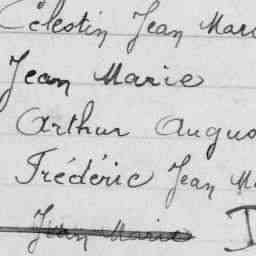 Célestin Jean Mari
Jean Marie
Arthur Augus
Frédéric Jean M
Jean Marie